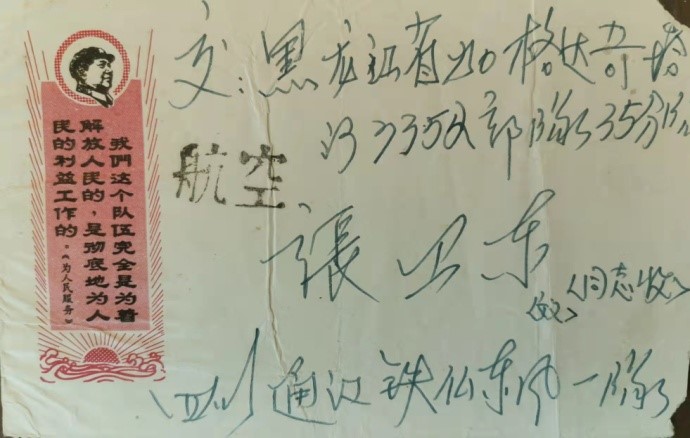 我們这个队伍完全是为着
解放人民的，是彻底地为人
民的利益工作的。《为人民服务》
航空
交：黑龙江省加格达奇塔
河3352部隊35分队
張卫东
同志收
四川通江铁仏东风一隊